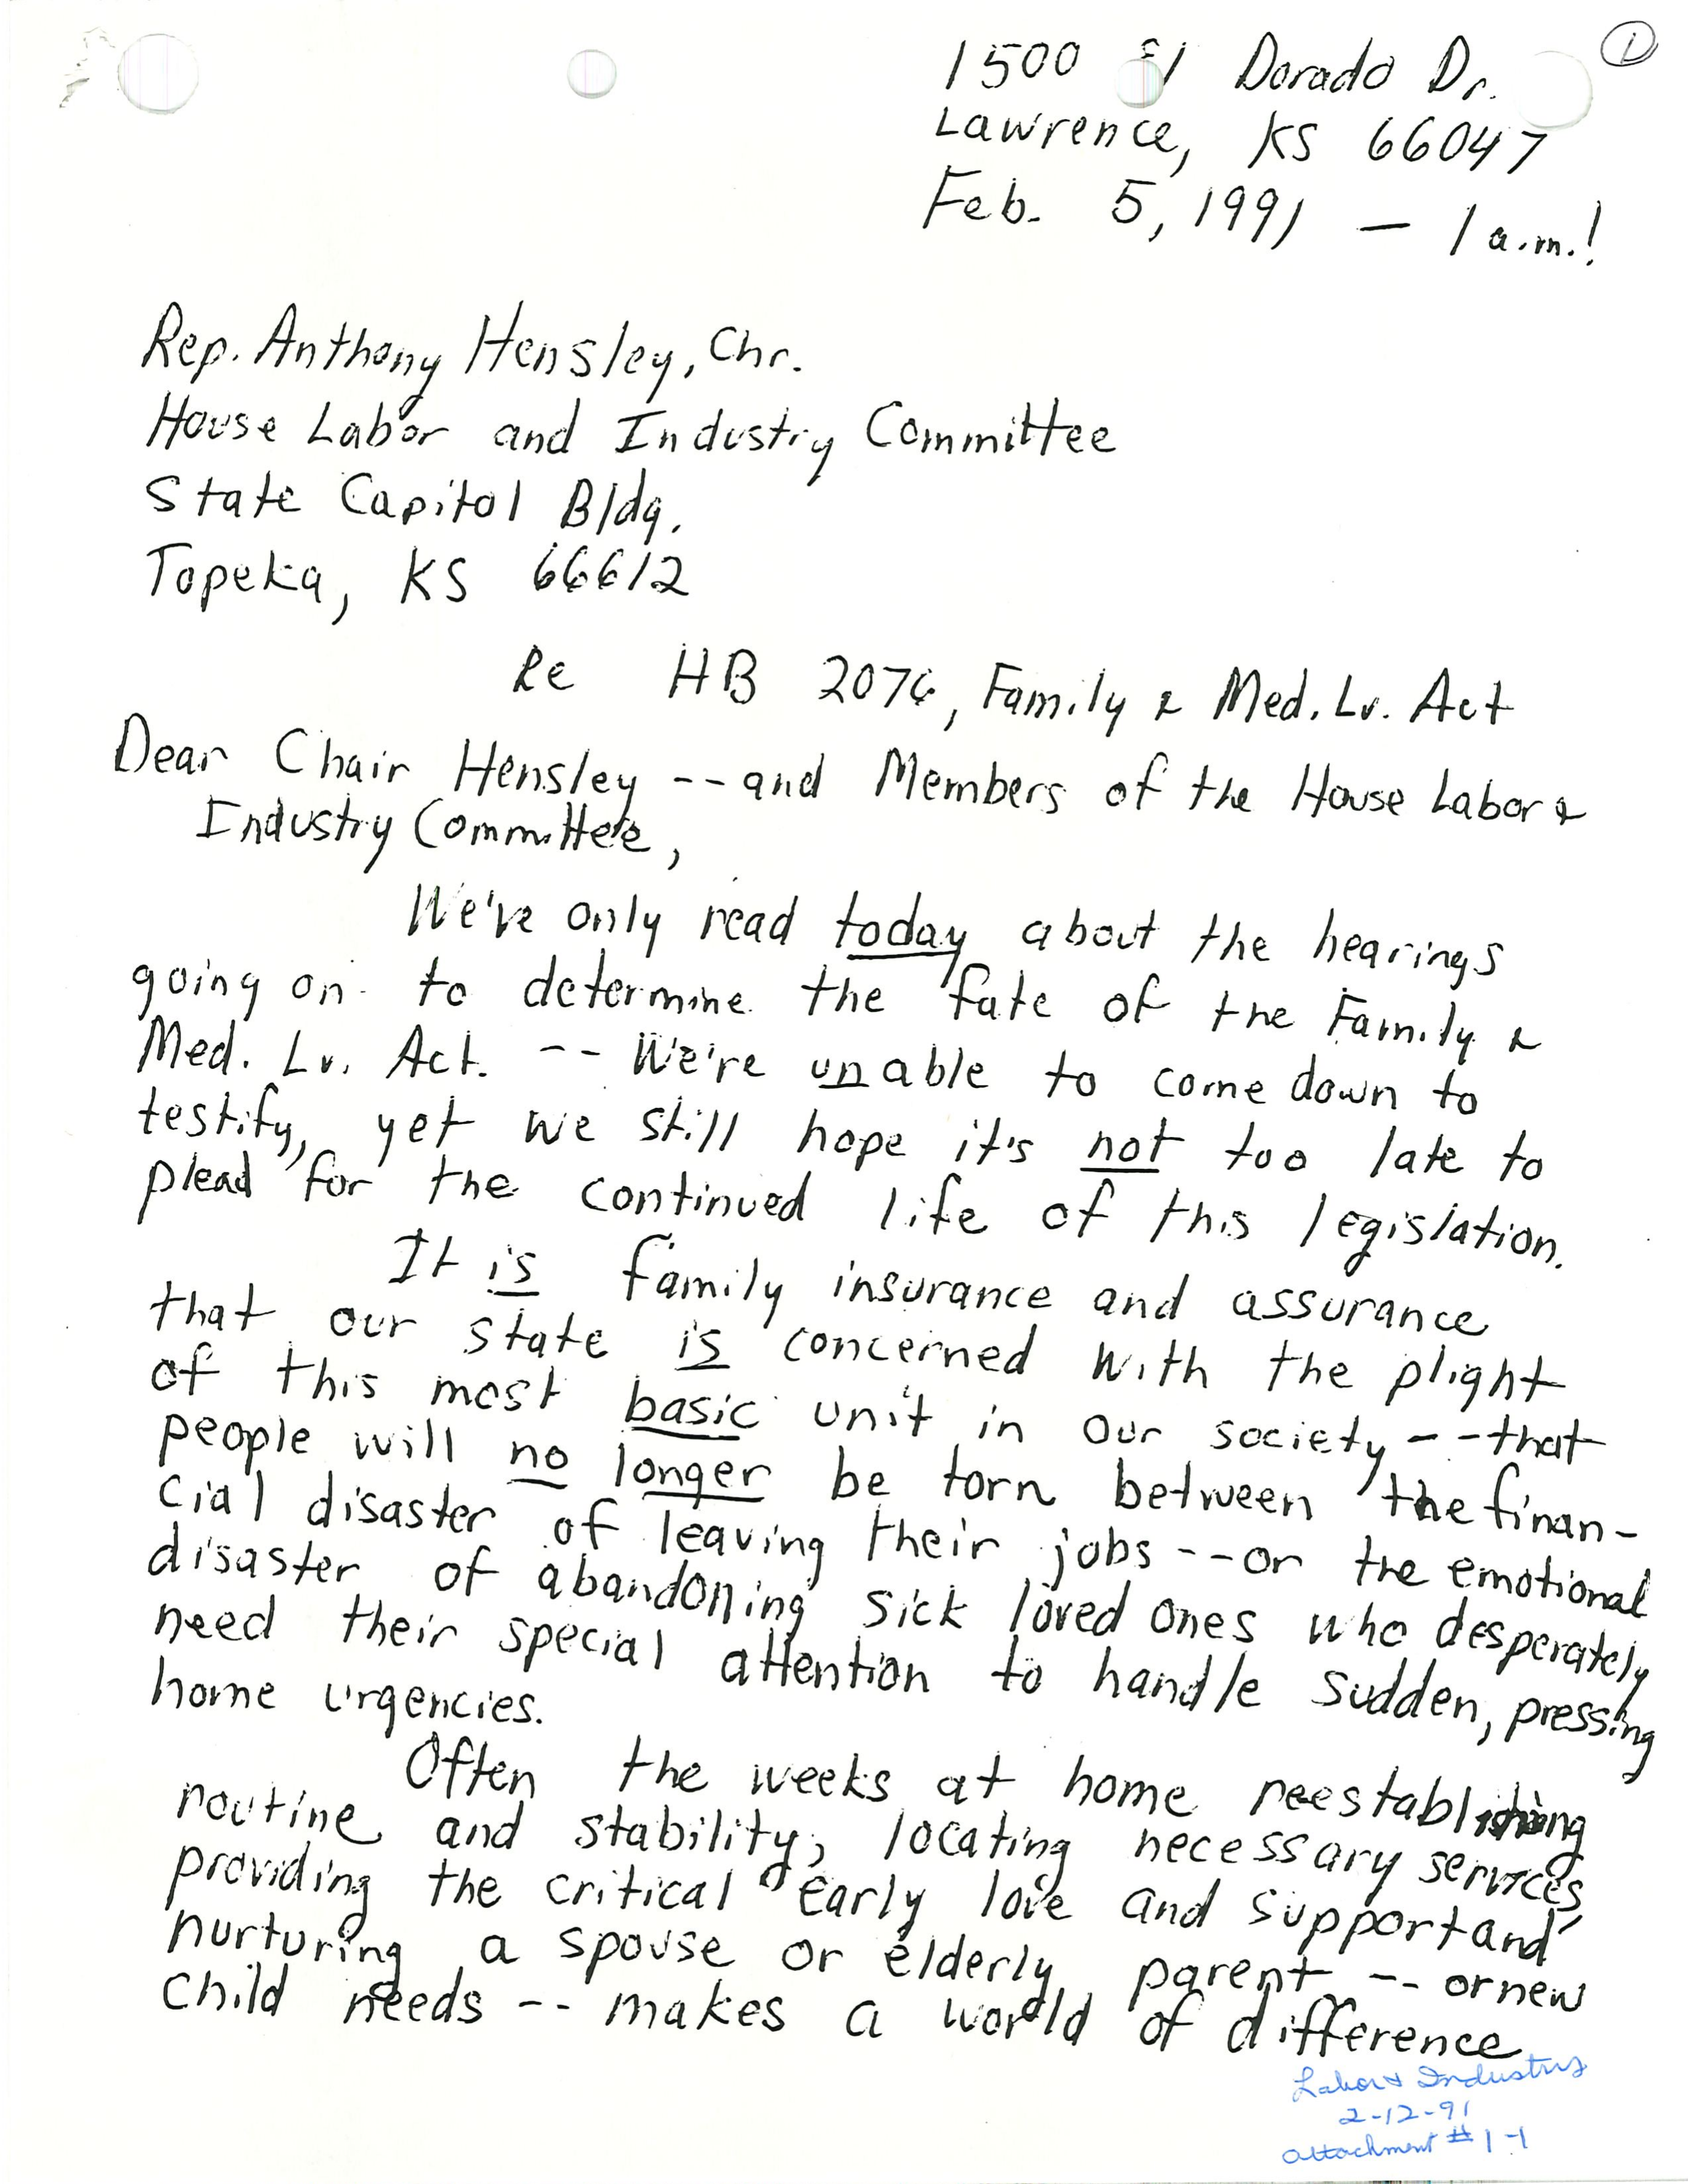 1
1500 El Dorado Dr.
Lawrence, KS 66047
Feb. 5, 1991 — 1 a.m.!
Rep. Anthony Hensley, Chr.
House Labor and Industry Committee
State Capitol Bldg.
Topeka, KS 66612
Re HB 2076, Family & Med. Lv. Act
Dear Chair Hensley -- and Members of the House Labor &
Industry Committee,
We've only read today about the hearings
going on to determine the fate of the Family &
Med. Lv. Act. -- We're unable to come down to
testify, yet we still hope it's not too late to
plead for the continued life of this legislation.
It is family insurance and assurance
that our state is concerned with the plight
of this most basic unit in our society -- that
people will no longer be torn between the finan-
cial disaster of leaving their jobs -- or the emotional
disaster of abandoning sick loved ones who desperately
need their special attention to handle sudden, pressing
home urgencies.
Often the weeks at home reestablishing
routine and stability, locating necessary services,
providing the critical early love and support and
nurturing a spouse or elderly parent -- or new
child needs -- makes a world of difference
Labor & Industry
2-12-91
Attachment # 1-1